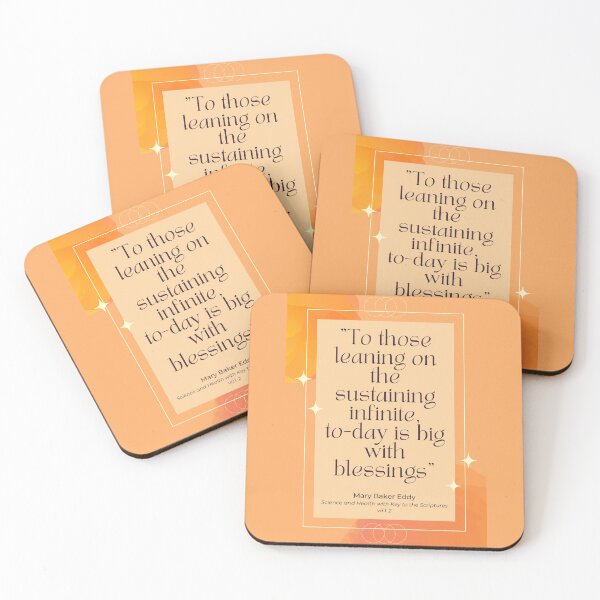 "To those
leaning on
the
sustaining
infinite,
is big
"To those
leaning on
the
sustaining
infinite,
to-day is big
with
blessings"
"To those
leaning on
the
sustaining
infinite,
to-day is big
with
blessings"
Mary Baker Eddy
Science and Health with Key to the
vii:1 2
"To those
leaning on
the
sustaining
infinite,
to-day is big
with
blessings"
Mary Baker Eddy
Science and Health with Key to the Scriptures
vii:1 2